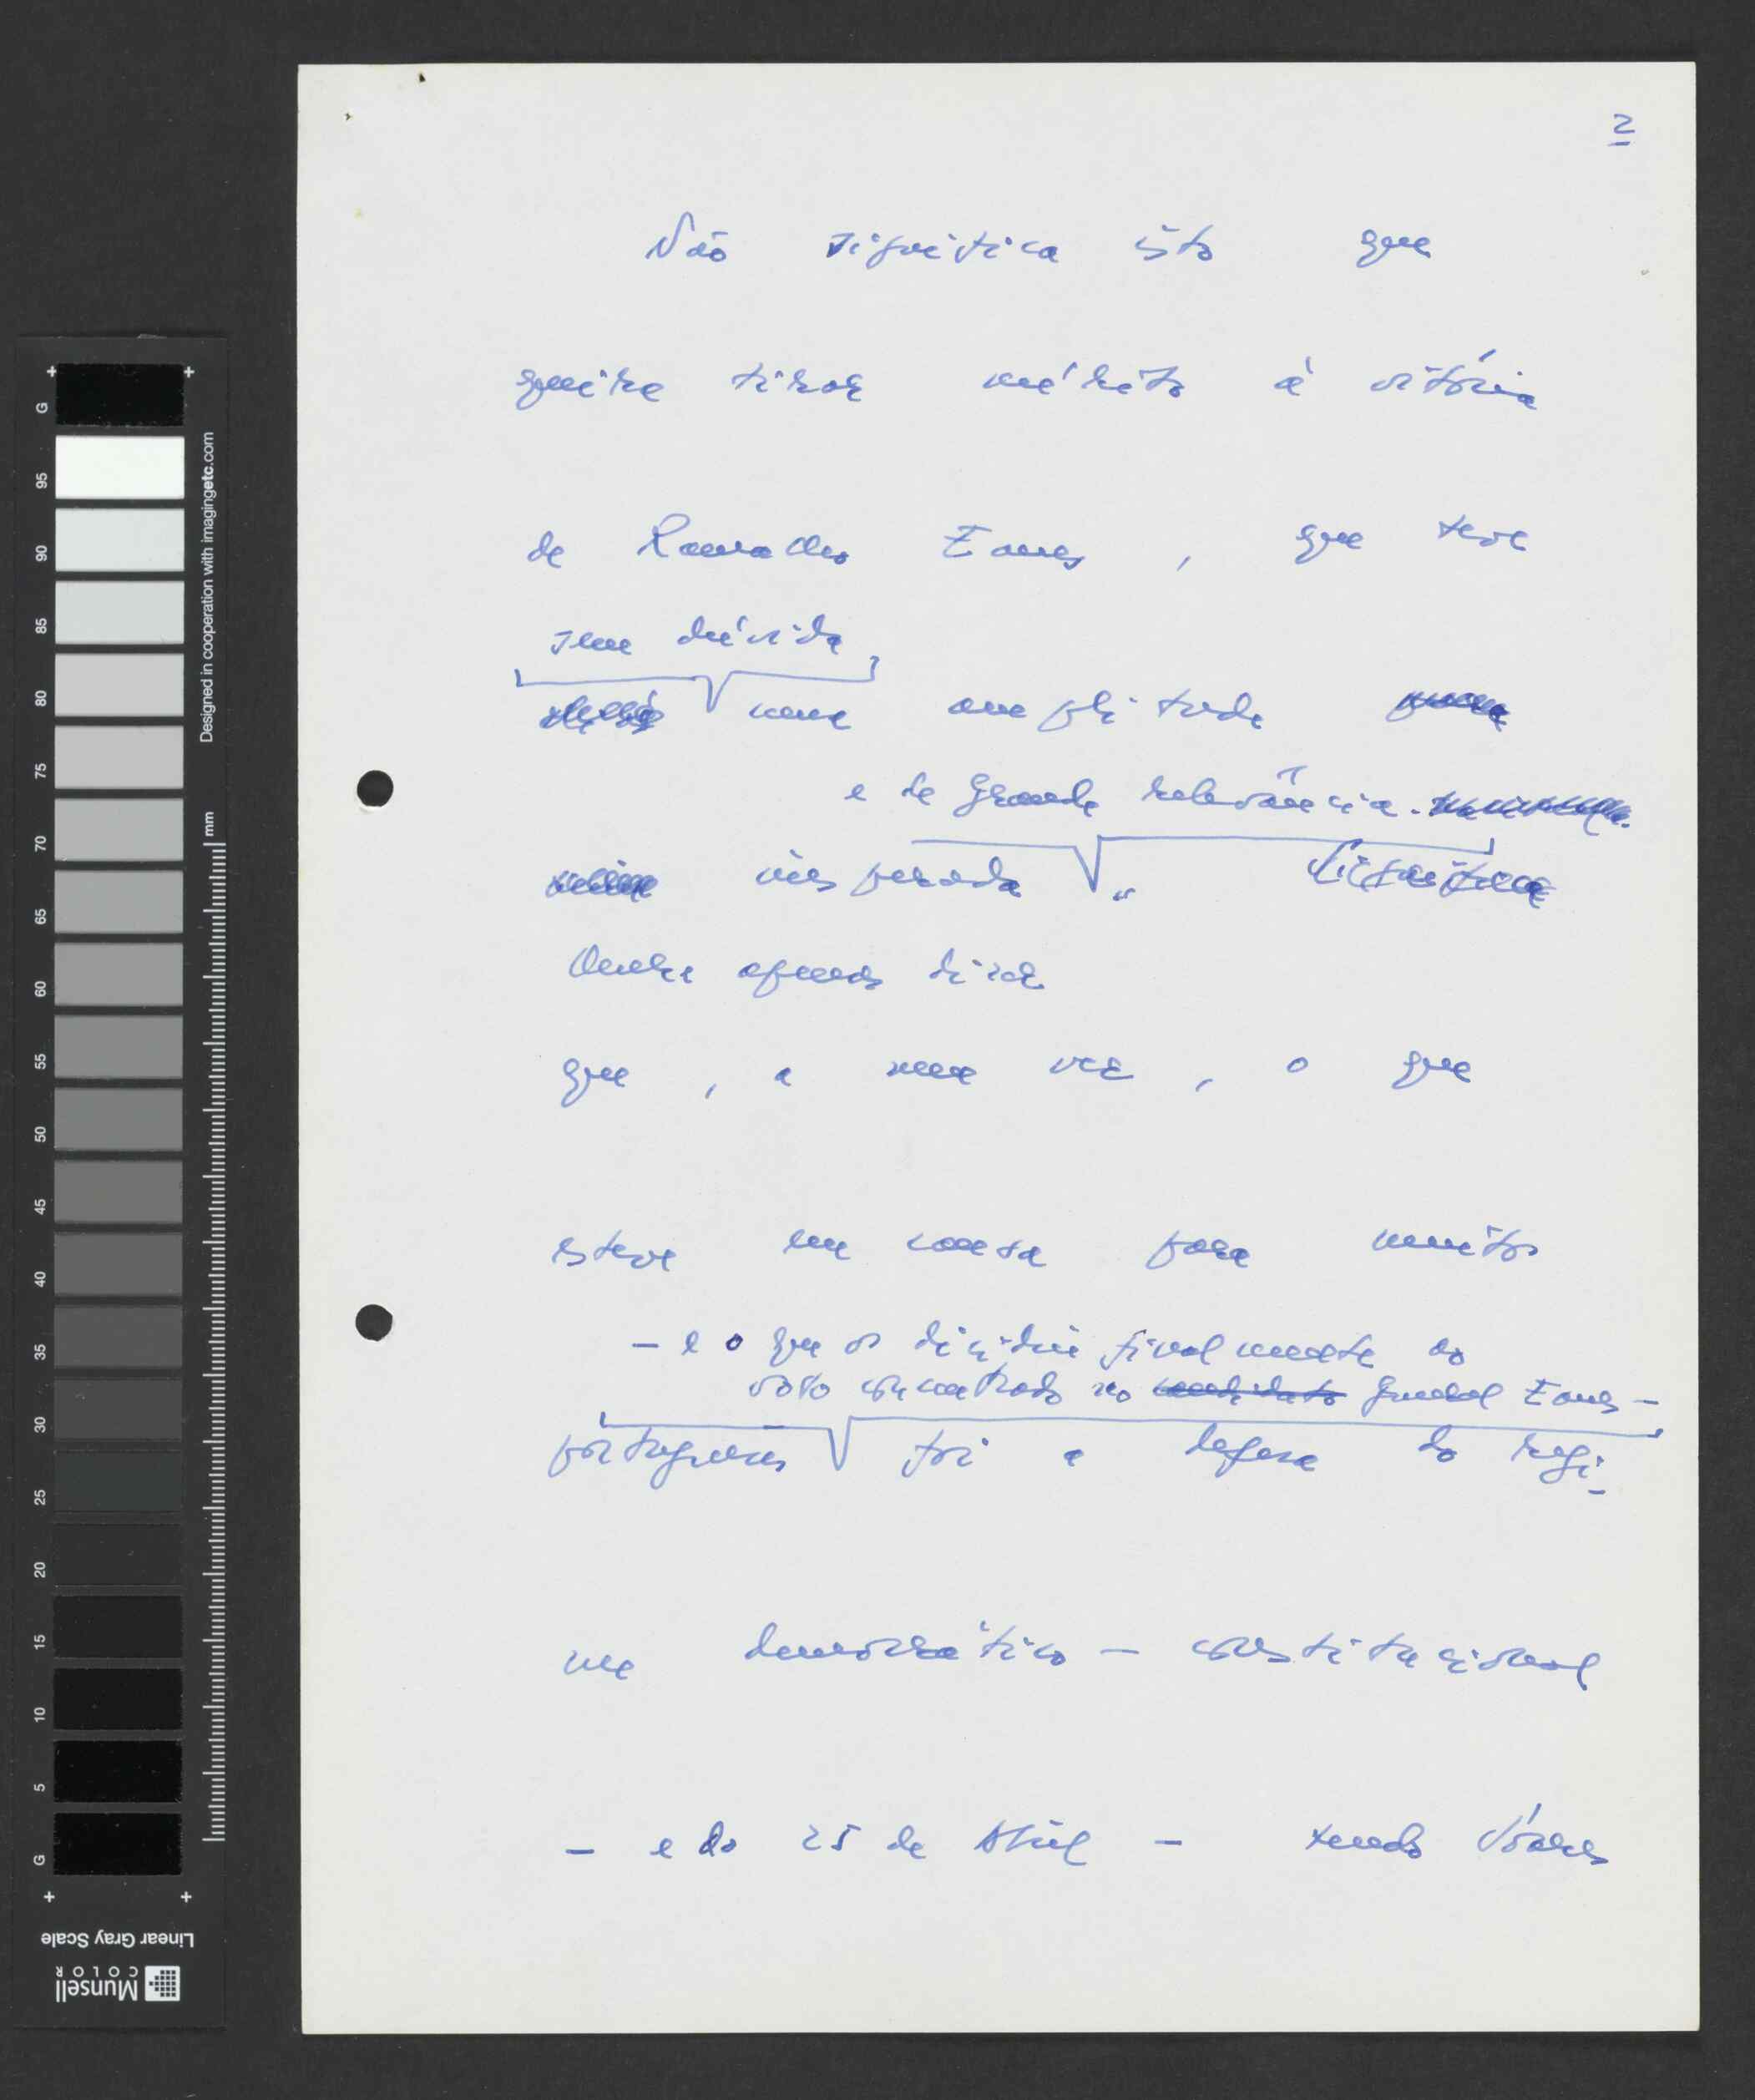 2
Não significa isto que
queira tirar mérito à vitória
de Ramalho Eanes, que teve
sem dúvida
uma amplitude
e de grande relevância.
inesperada
Quer apenas dizer
que, a meu ver, o que
esteve em causa para muitos
– e o que os decidiu finalmente ao
voto concentrado no candidato General Eanes –
portugueses foi a defesa do regi-
me democrático – constitucional
– e do 25 de Abril – tendo Soares
G
95
90
85
80
75
70
65
60
55
50
45
40
35
30
25
20
15
10
5
G
Designed in cooperation with imagingetc.com
mm
Linear Gray Scale
Munsell
COLOR